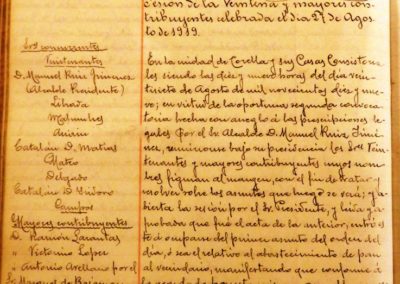 Sesión de la Veintena y mayores con-
tribuyentes celebrada el dia 27 de Agos-
to de 1919.
Sres concurrentes
Veintenantes
D. Manuel Ruiz Jimenez
(Alcalde Presidente)
Catalán D. Matias
Mateo
Delgado
Catalán D. Isidoro
Campos
Mayores contribuyentes
D. Ramón
" Victorio Lopez
" Antonio Arellano por el
Sr Marqués de
En la ciudad de Corella y sus Casas Consistoria-
les siendo las diez y nueve horas del dia vein-
tisiete de Agosto de mil novecientos diez y nue-
ve; en virtud de la oportuna segunda convoca-
toria hecha con arreglo á las prescripciones le-
gales por el Sr. Alcalde D. Manuel Ruiz Jimé-
nez, reunieronse bajo su presidencia los Sres Vein-
tenantes y mayores contribuyentes cuyos nom-
bres figuran al margen, con el fin de tratar y
resolver sobre los asuntos que luego se verá; y a-
bierta la sesión por el Sr. Presidente, y leida y a-
probada que fué el acta de la anterior, entró-
se á ocuparse del primer asunto del orden del
dia, ó sea el relativo al abastecimiento de pan
al vecindario, manifestando que conforme á